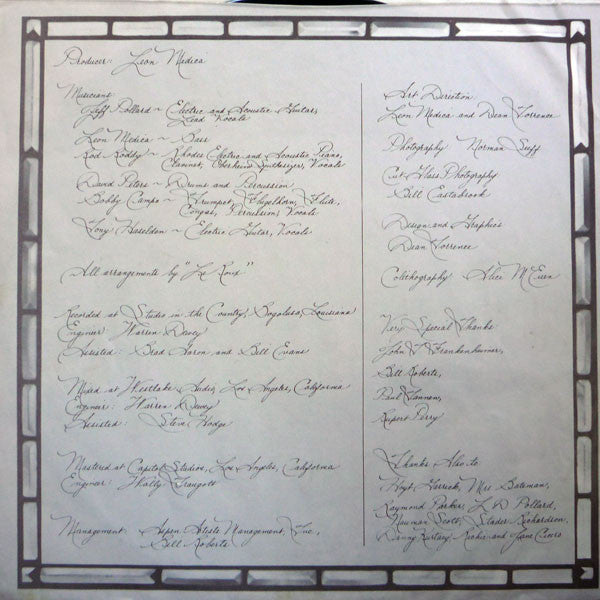 Producer: Leon Medica
Musicians:
Jeff Pollard ~ Electric and Acoustic Guitar,
Lead Vocals
Leon Medica ~ Bass
Rod Roddy ~ Rhodes Electric and Acoustic Piano,
Clavinet, Oberheim Synthesizer, Vocals
David Peters ~ Drums and Percussion
Bobby Campo ~ Trumpet, Flugelhorn, Flute,
Congas, Percussion, Vocals
Tony Haseldon ~ Electric Guitar, Vocals
All arrangements by "Le Roux"
Recorded at Studio in the Country, Bogalusa, Louisiana
Engineer: Warren Dewey
Assisted: Brad Aaron and Bill Evans
Mixed at Westlake Audio, Los Angeles, California
Engineer: Warren Dewey
Assisted: Steve Hodge
Mastered at Capitol Studios, Los Angeles, California
Engineer: Wally Traugott
Management: Aspen Artists Management, Inc.,
Bill Roberts
Art Direction
Leon Medica and Dean Torrence
Photography Norman Seeff
Cut Glass Photography
Bill Eastabrook
Design and Graphics
Dean Torrence
Calithography Alice McEuen
Very Special Thanks
John T Frankenheimer,
Bill Roberts,
Paul Tannen,
Rupert Perry
Thanks Also to
Hoyt Garrick, Mrs Bateman,
Raymond Parker, L D Pollard,
Nauman Scott, Slader Richardson,
Danny Kustaey, Richie and Jane Cicero